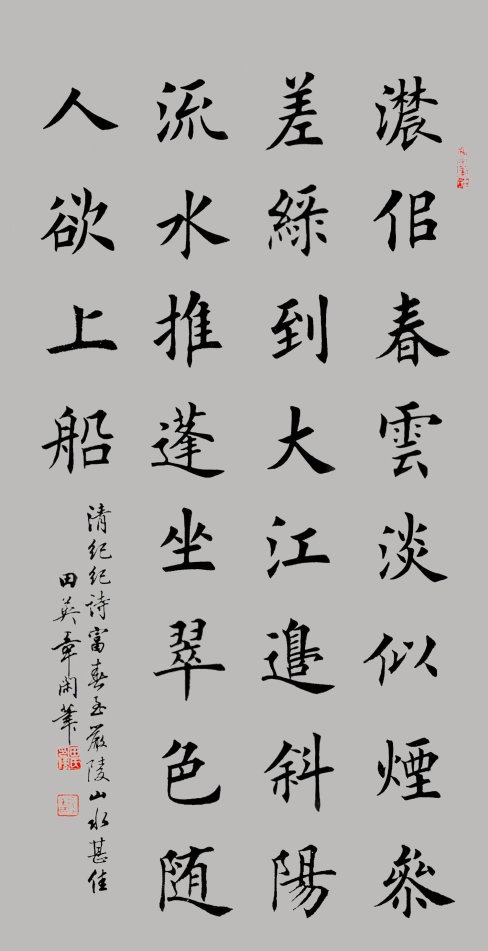 濃佀春雲淡似煙參
差綠到大江邉斜陽
流水推蓬坐翠色随
人欲上船
清纪纪詩富春至嚴陵山水甚佳
田英章閑筆